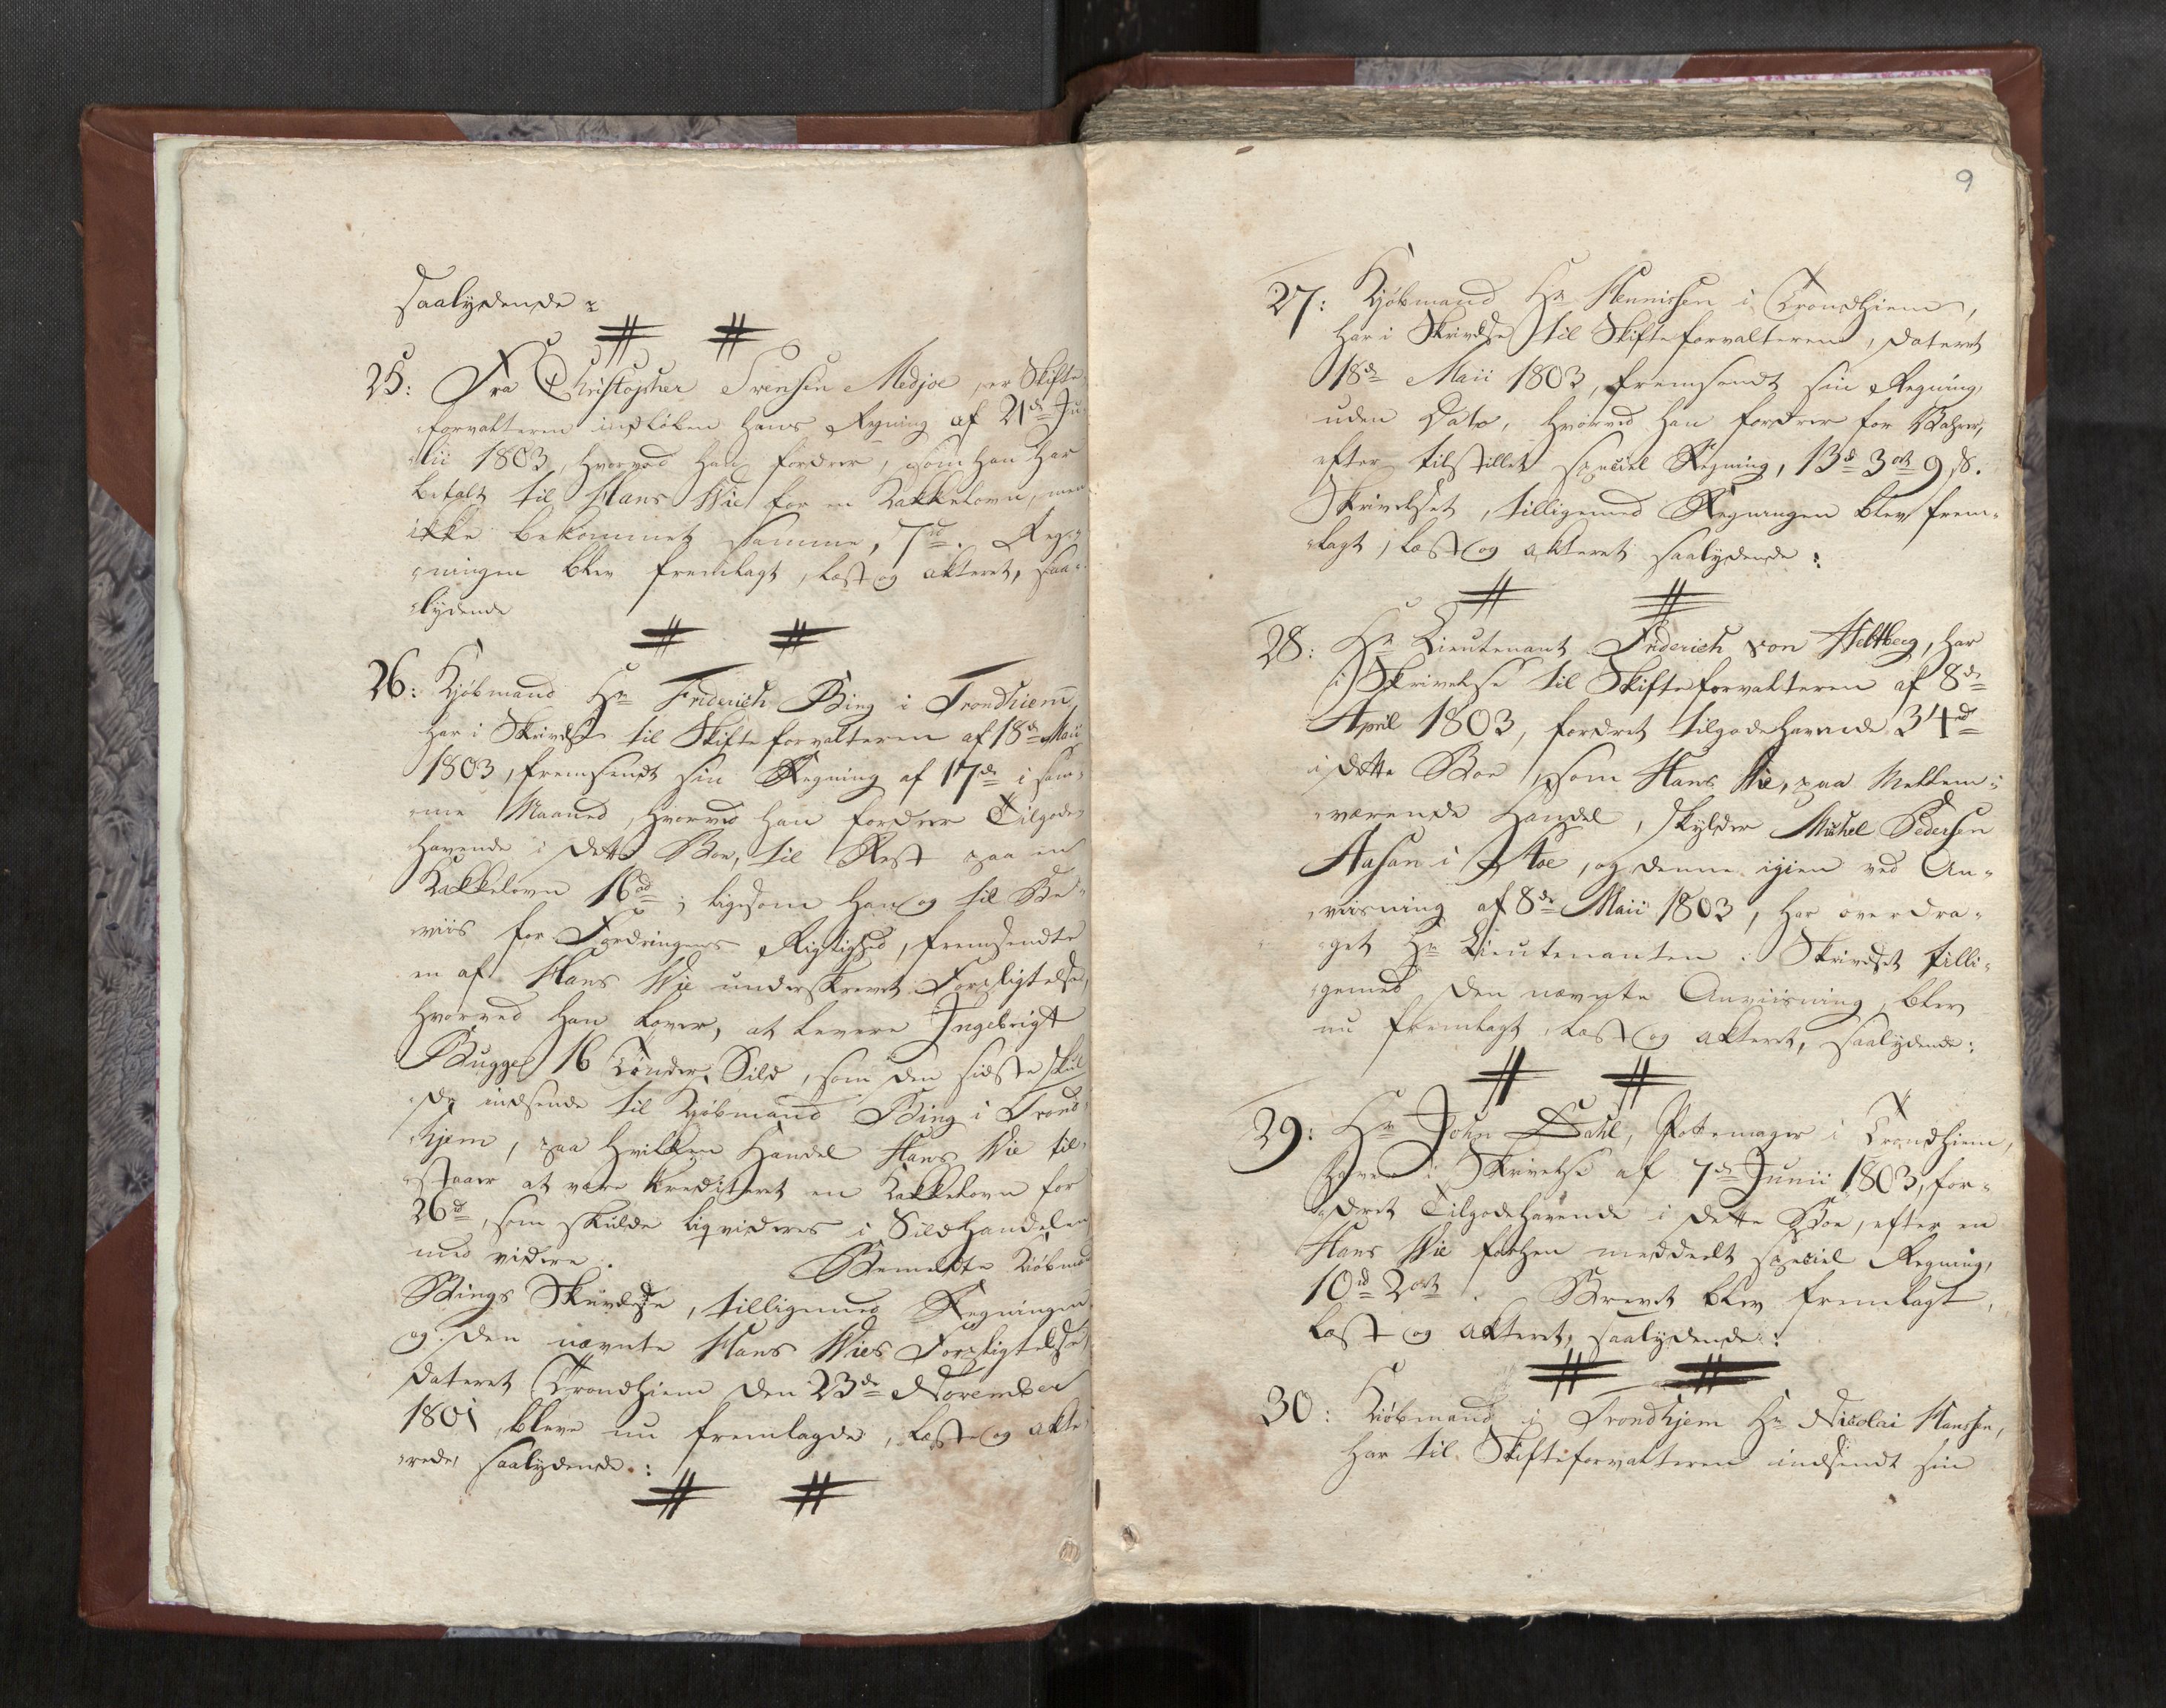 saalydende :
# #
25: Fra Christopher Svensen Medjoe, er Skifte-
forvalteren indløben hans Regning af 21de Ju-
lii 1803, hvorved han fordrer, som han har
betalt til Hans Wie for en Kakkelovn, men
ikke bekommet samme, 7 rd. Reg-
ningen blev fremlagt, læst og akteret, saa-
lydende
# #
26: Kjøbmand Hr Friderich Bing i Trondhiem,
har i Skrivelse til Skifteforvalteren af 18de Maii
1803, fremsendt sin Regning af 17de i sam-
me Maaned, hvorved han fordrer Tilgode-
havende i dette Boe, til Rest paa en
Kakkelovn 16 rd; ligesom han og til Be-
viis for Fordringens Rigtighed, fremsendte
en af Hans Wie underskrevet Forpligtelse,
hvorved han lover, at levere Ingebrigt
Bugge 16 Tønder Sild, som den sidste skul-
de indsende til Kjøbmand Bing i Trond-
hjem, paa hvilken Handel Hans Wie til-
staaer at være krediteret en Kakkelovn for
26 rd, som skulde liqvideres i Sildhandelen
med videre. Bemeldte Kiøbmand
Bings Skrivelse, tilligemed Regningen
og den nævnte Hans Wies Forpligtelse,
dateret Trondhiem den 23de November
1801, bleve nu fremlagde, læste og akte-
rede, saalydende :
# #
9
27: Kjøbmand Hr Hennissen i Trondhiem,
har i Skrivelse til Skifteforvalteren, dateret
18de Maii 1803, fremsendt sin Regning,
uden Dato, hvorved han fordrer for Vahrer,
efter tilstillet speciel Regning, 13 rd 3 ort 9 s.
Skrivelset, tilligemed Regningen blev frem-
lagt, læst og akteret saalydende :
# #
28: Hr Lieutenant Friderich von Heltberg, har
i Skrivelse til Skifteforvalteren af 8de
April 1803, fordret tilgodehavende 34 rd
i dette Boe, som Hans Wie, paa Mellem-
værende Handel, skylder Michel Pedersen
Aasan i Stoe, og denne igien ved An-
viisning af 8de Maii 1803, har overdra-
get Hr Lieutenanten. Skrivelset tilli-
gemed den nævnte Anviisning, blev
nu fremlagt, læst og akteret, saalydende :
# #
29: Hr John Dahl, Pottemager i Trondhiem,
haver i Skrivelse af 7de Junii 1803, for-
dret Tilgodehavende i dette Boe, efter en
Hans Wie forhen meddeelt speciel Regning,
10 rd 2 ort. Brevet blev fremlagt,
læst og akteret, saalydende :
# #
30: Kiøbmand i Trondhjem Hr Nicolai Hanssen,
har til Skifteforvalteren indsendt sin